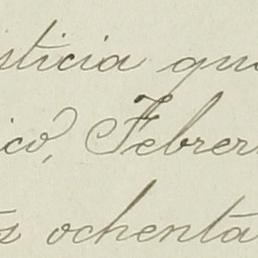 sticia que
ico, Febrer
s ochenta